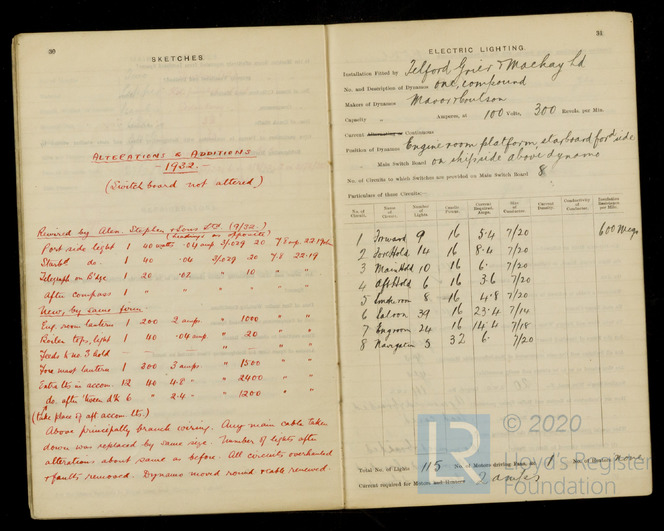 30
SKETCHES.
ALTERATIONS & ADDITIONS
- 1932 -
(Switchboard not altered)
Rewired by Alex. Stephen & Sons Ltd (9/32.)
(Headings as opposite)
Port side light 1 40 watts .04 amp 3/029 20 7.8 amp. 22.19
Starbd do. 1 40 .04 3/029 20 7.8 22.19
Telegraph on B'dge 1 20 .02 " 10 " "
After compass 1 " " " " " "
New, by same firm
Eng. room lantern 1 200 2 amps " 1000 " "
Boiler tops, light 1 40 .04 amp. " 20 " "
Feeds to no. 3 hold — — — " — " "
Fore mast lantern 1 200 3 amps " 1500 " "
Extra lts in accom. 12 40 4.8 " " 2400 " "
do. after 'tween dk 6 " 2.4 " " 1200 " "
(take place of aft accom lts.)
Above principally branch wiring. Any main cable taken
down was replaced by same size. Number of lights after
alterations about same as before. All circuits overhauled
& faults removed. Dynamo moved round & cable renewed
31
ELECTRIC LIGHTING.
Installation Fitted by Telford Grier & Mackay Ld
No. and Description of Dynamos one, compound
Makers of Dynamos Mavor & Coulson
Capacity " Amperes, at 100 Volts, 300 Revols. per Min.
Current Alternating or Continuous
Position of Dynamos Engine room platform, starboard ford side
" Main Switch Board on ships side above dynamo
No. of Circuits to which Switches are provided on Main Switch Board 8
Particulars of these Circuits:—
No. of Circuit. Name of Circuit. Number of Lights. Candle Power. Current Required. Amps. Size of Conductor. Current Density. Conductivity of Conductor. Insulation Resistance per Mile.
1 Forward 9 16 5.4 7/20 600 Megs
2 Fore Hold 14 16 8.4 7/20
3 Main Hold 10 16 6. 7/20
4 Aft Hold 6 16 3.6 7/20
5 Smokeroom 8 16 4.8 7/20
6 Saloon 39 16 23.4 7/14
7 Eng room 24 16 14.4 7/18
8 Navigation 5 32 6. 7/20
Total No. of Lights 115 No. of Motors driving Fans, &c. 1 No. of Heaters none
Current required for Motors and Heaters 2 amps
© 2020
LR
Lloyd's Register
Foundation